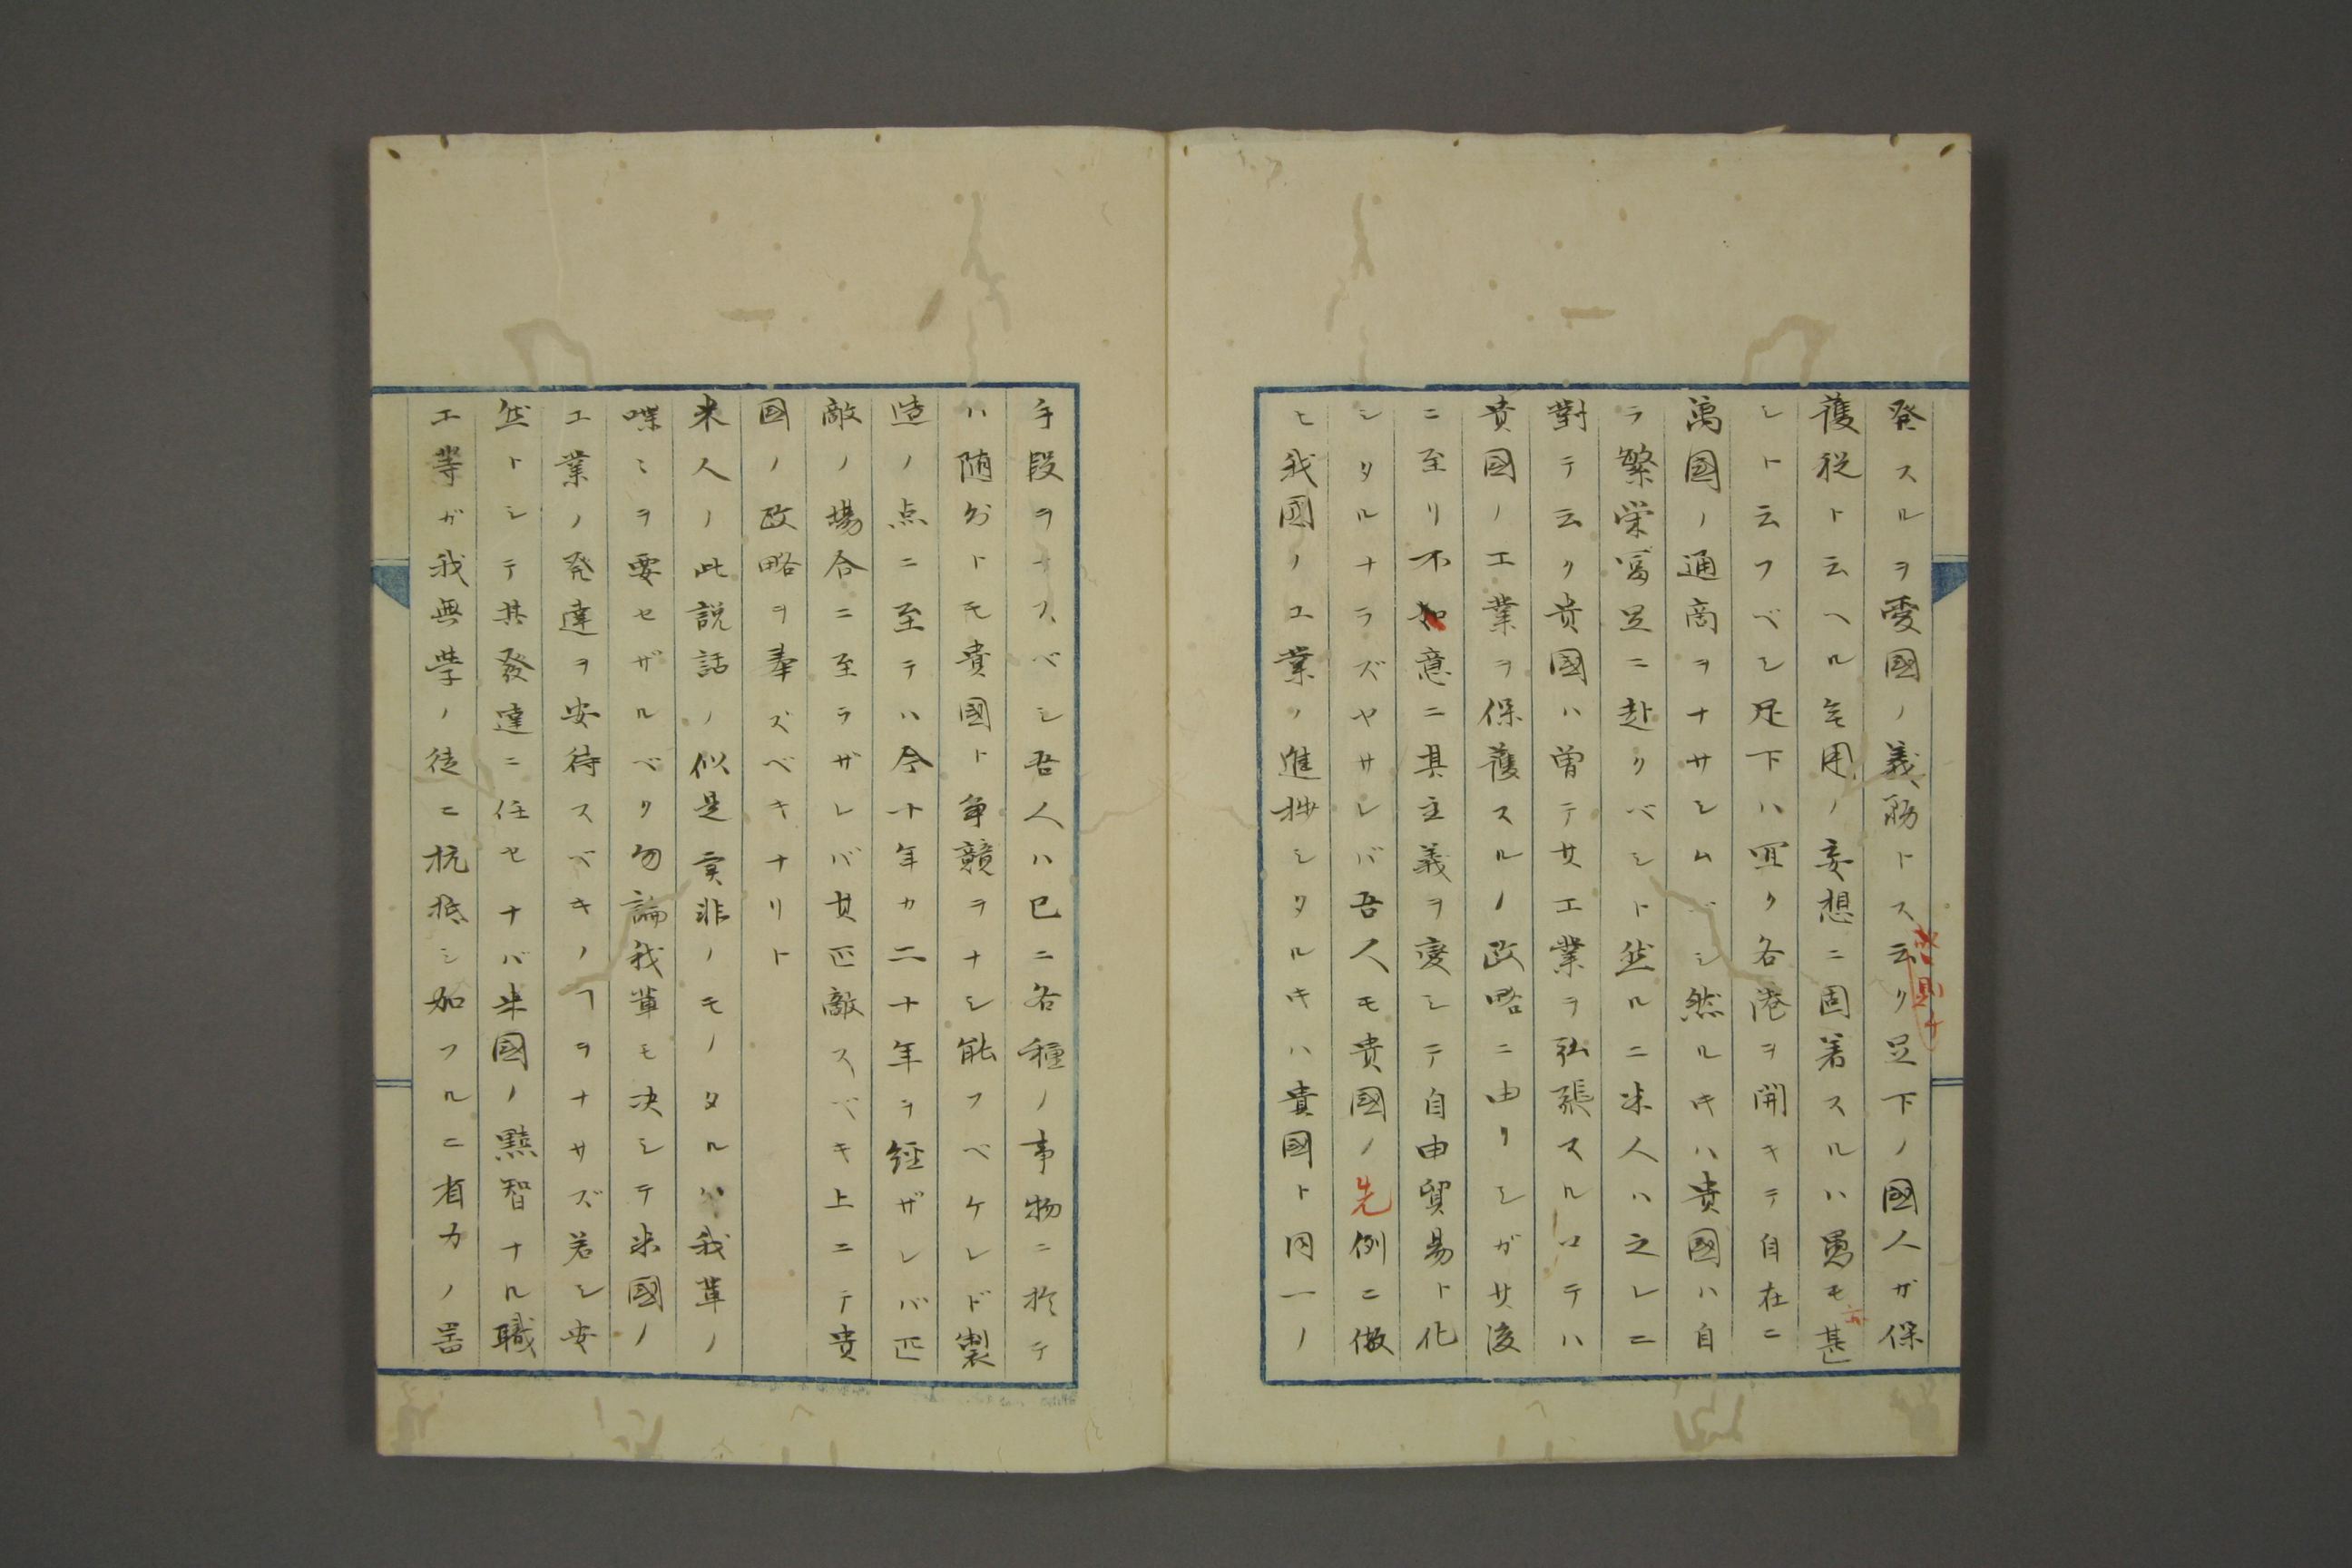 発スルヲ愛國ノ義務トス云ク足下ノ國人ガ保
護税ト云ヘル無用ノ妄想ニ固着スルハ愚モ亦甚
シト云フベシ足下ハ冝ク各港ヲ開キテ自在ニ
萬國ノ通商ヲナサシムベシ然ルキハ貴國ハ自
ラ繁栄冨足ニ赴クベシト然ルニ米人ハ之レニ
對テ云ク貴國ハ曽テ其工業ヲ弘張スルロテハ
貴國ノ工業ヲ保護スルノ政略ニ由リシガ其後
ニ至リ不如意ニ其主義ヲ変シテ自由貿易ト化
シタルナラズヤサレバ吾人モ貴國ノ先例ニ倣
ヒ我國ノ工業ノ進捗シタルキハ貴國ト同一ノ
手段ヲナスベシ吾人ハ已ニ各種ノ事物ニ於テ
ハ随分トモ貴國ト争競ヲナシ能フベケレド製
造ノ点ニ至テハ今十年カ二十年ヲ経ザレバ匹
敵ノ場合ニ至ラザレバ其匹敵スベキ上ニテ貴
國ノ政略ヲ奉ズベキナリト
米人ノ此説話ノ似是実非ノモノタルハ我輩ノ
喋ミヲ要セザルベク勿論我輩モ决シテ米國ノ
工業ノ発達ヲ安待スベキノヿヲナサズ若シ安
然トシテ其發達ニ任セナバ米國ノ黠智ナル職
工等ガ我無学ノ徒ニ抗抵シ加フルニ有力ノ器